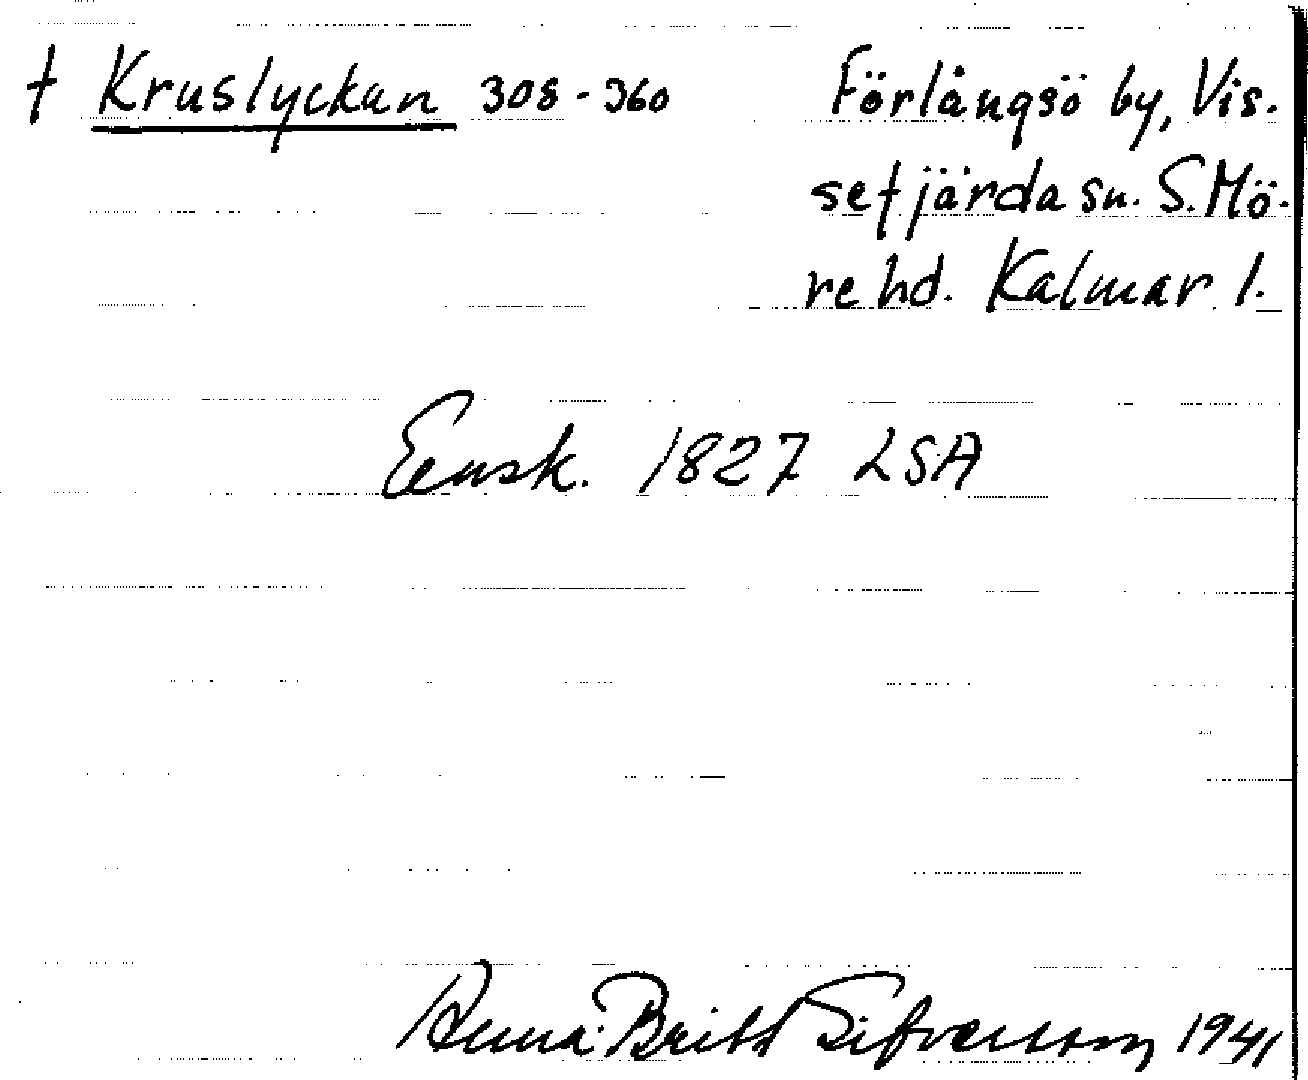 † Kruslyckan 308-360 Förlångsö by, Vis.
sefjärda sn. S. Mö.
re hd. Kalmar l.
Ensk. 1827 LSA
Anna-Britt Sifversson 1941